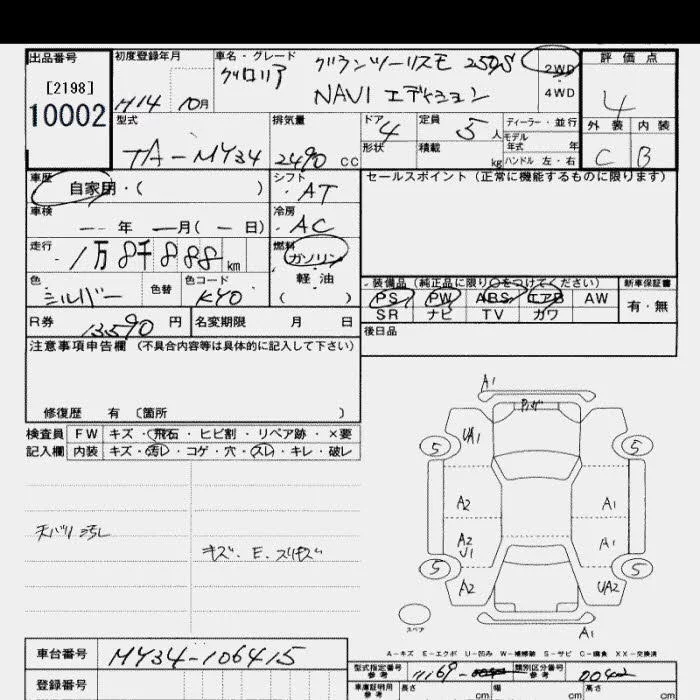 出品番号
[2198]
10002
初度登録年月
H14 10月
車名・グレード
グロリア グランツーリスモ 250S
NAVI エディション
2WD
4WD
評価点
4
外装 内装
C B
型式
TA-MY34
排気量
2490 CC
ドア 4
形状
定員 5人
積載 kg
ディーラー・並行
モデル
年式 年
ハンドル 左・右
車歴
自家用・( )
シフト
AT
車検
年 月( 日)
冷房
AC
走行
1万8千888 km
燃料
ガソリン
軽油
( )
色
シルバー
色替
色コード
KY0
R券 13,590 円
名変期限 月 日
セールスポイント(正常に機能するものに限ります)
装備品(純正品に限り○をつけてください)
PS PW ABS エアB AW
SR ナビ TV カワ
新車保証書
有・無
後日品
注意事項申告欄(不具合内容等は具体的に記入して下さい)
修復歴 有〔箇所 〕
検査員 FW キズ・飛石・ヒビ割・リペア跡・×要
記入欄 内装 キズ・汚レ・コゲ・穴・スレ・キレ・破レ
天バリ汚レ
キズ・E・スリキズ
A1
UA1
5
5
A2
A1
A2
U1
A1
5
5
A2
UA2
スペア
A1
A-キズ E-エクボ U-凹み W-補修跡 S-サビ C-腐食 XX-交換済
車台番号 MY34-106415
型式指定番号
参考
類別区分番号
参考
登録番号
車庫証明用
参考
長さ cm
幅 cm
高さ cm